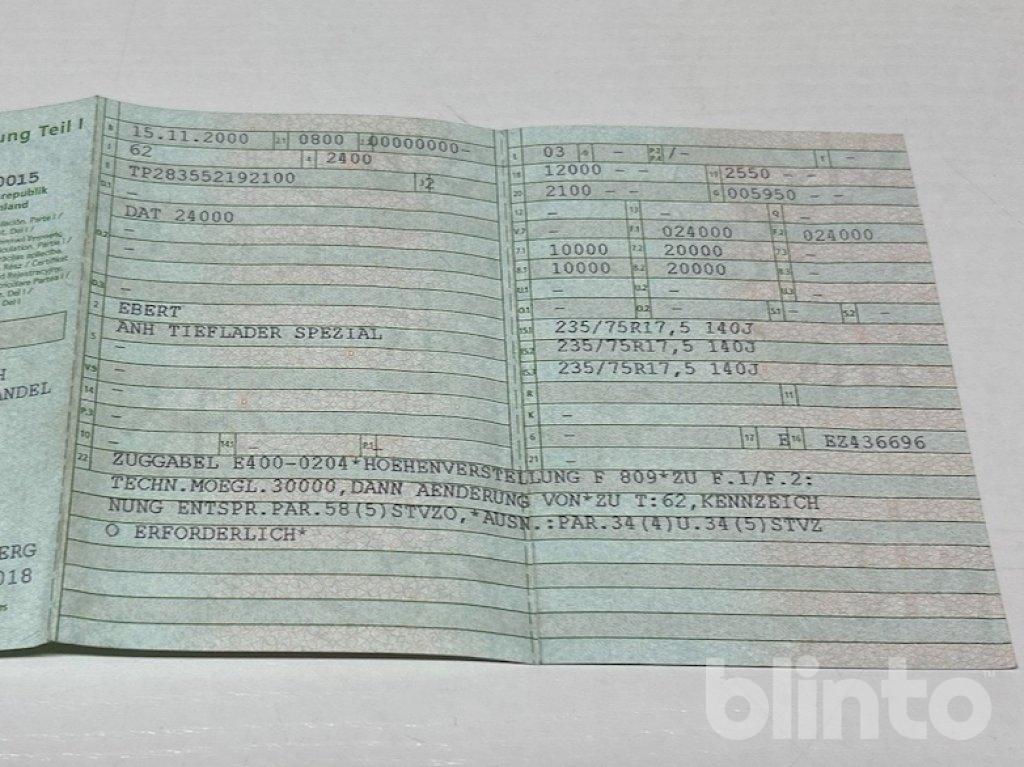 ung Teil I
0015
republik
nland
H
ANDEL
ERG
018
B 15.11.2000 2.1 0800 2.2 00000000-
J 62 4 2400
E TP283552192100 3 2
D.1 –
DAT 24000
D.2 –
–
D.3 –
2 EBERT
5 ANH TIEFLADER SPEZIAL
–
V.9 –
14 –
P.3 –
10 – 14.1 – P.1 –
L 03 9 – P.2 P.4 /– T –
18 12000 – – 19 2550 – –
20 2100 – – G 005950 – –
12 – 13 – Q –
V.7 – F.1 024000 F.2 024000
7.1 10000 7.2 20000 7.3 –
8.1 10000 8.2 20000 8.3 –
U.1 – U.2 – U.3 –
O.1 – O.2 – S.1 – S.2 –
15.1 235/75R17,5 140J
15.2 235/75R17,5 140J
15.3 235/75R17,5 140J
R 11
K –
6 – 17 E 16 EZ436696
21 –
22 ZUGGABEL E400-0204*HOEHENVERSTELLUNG F 809*ZU F.1/F.2:
TECHN.MOEGL.30000,DANN AENDERUNG VON*ZU T:62,KENNZEICH
NUNG ENTSPR.PAR.58(5)STVZO,*AUSN.:PAR.34(4)U.34(5)STVZ
O ERFORDERLICH*
blinto™